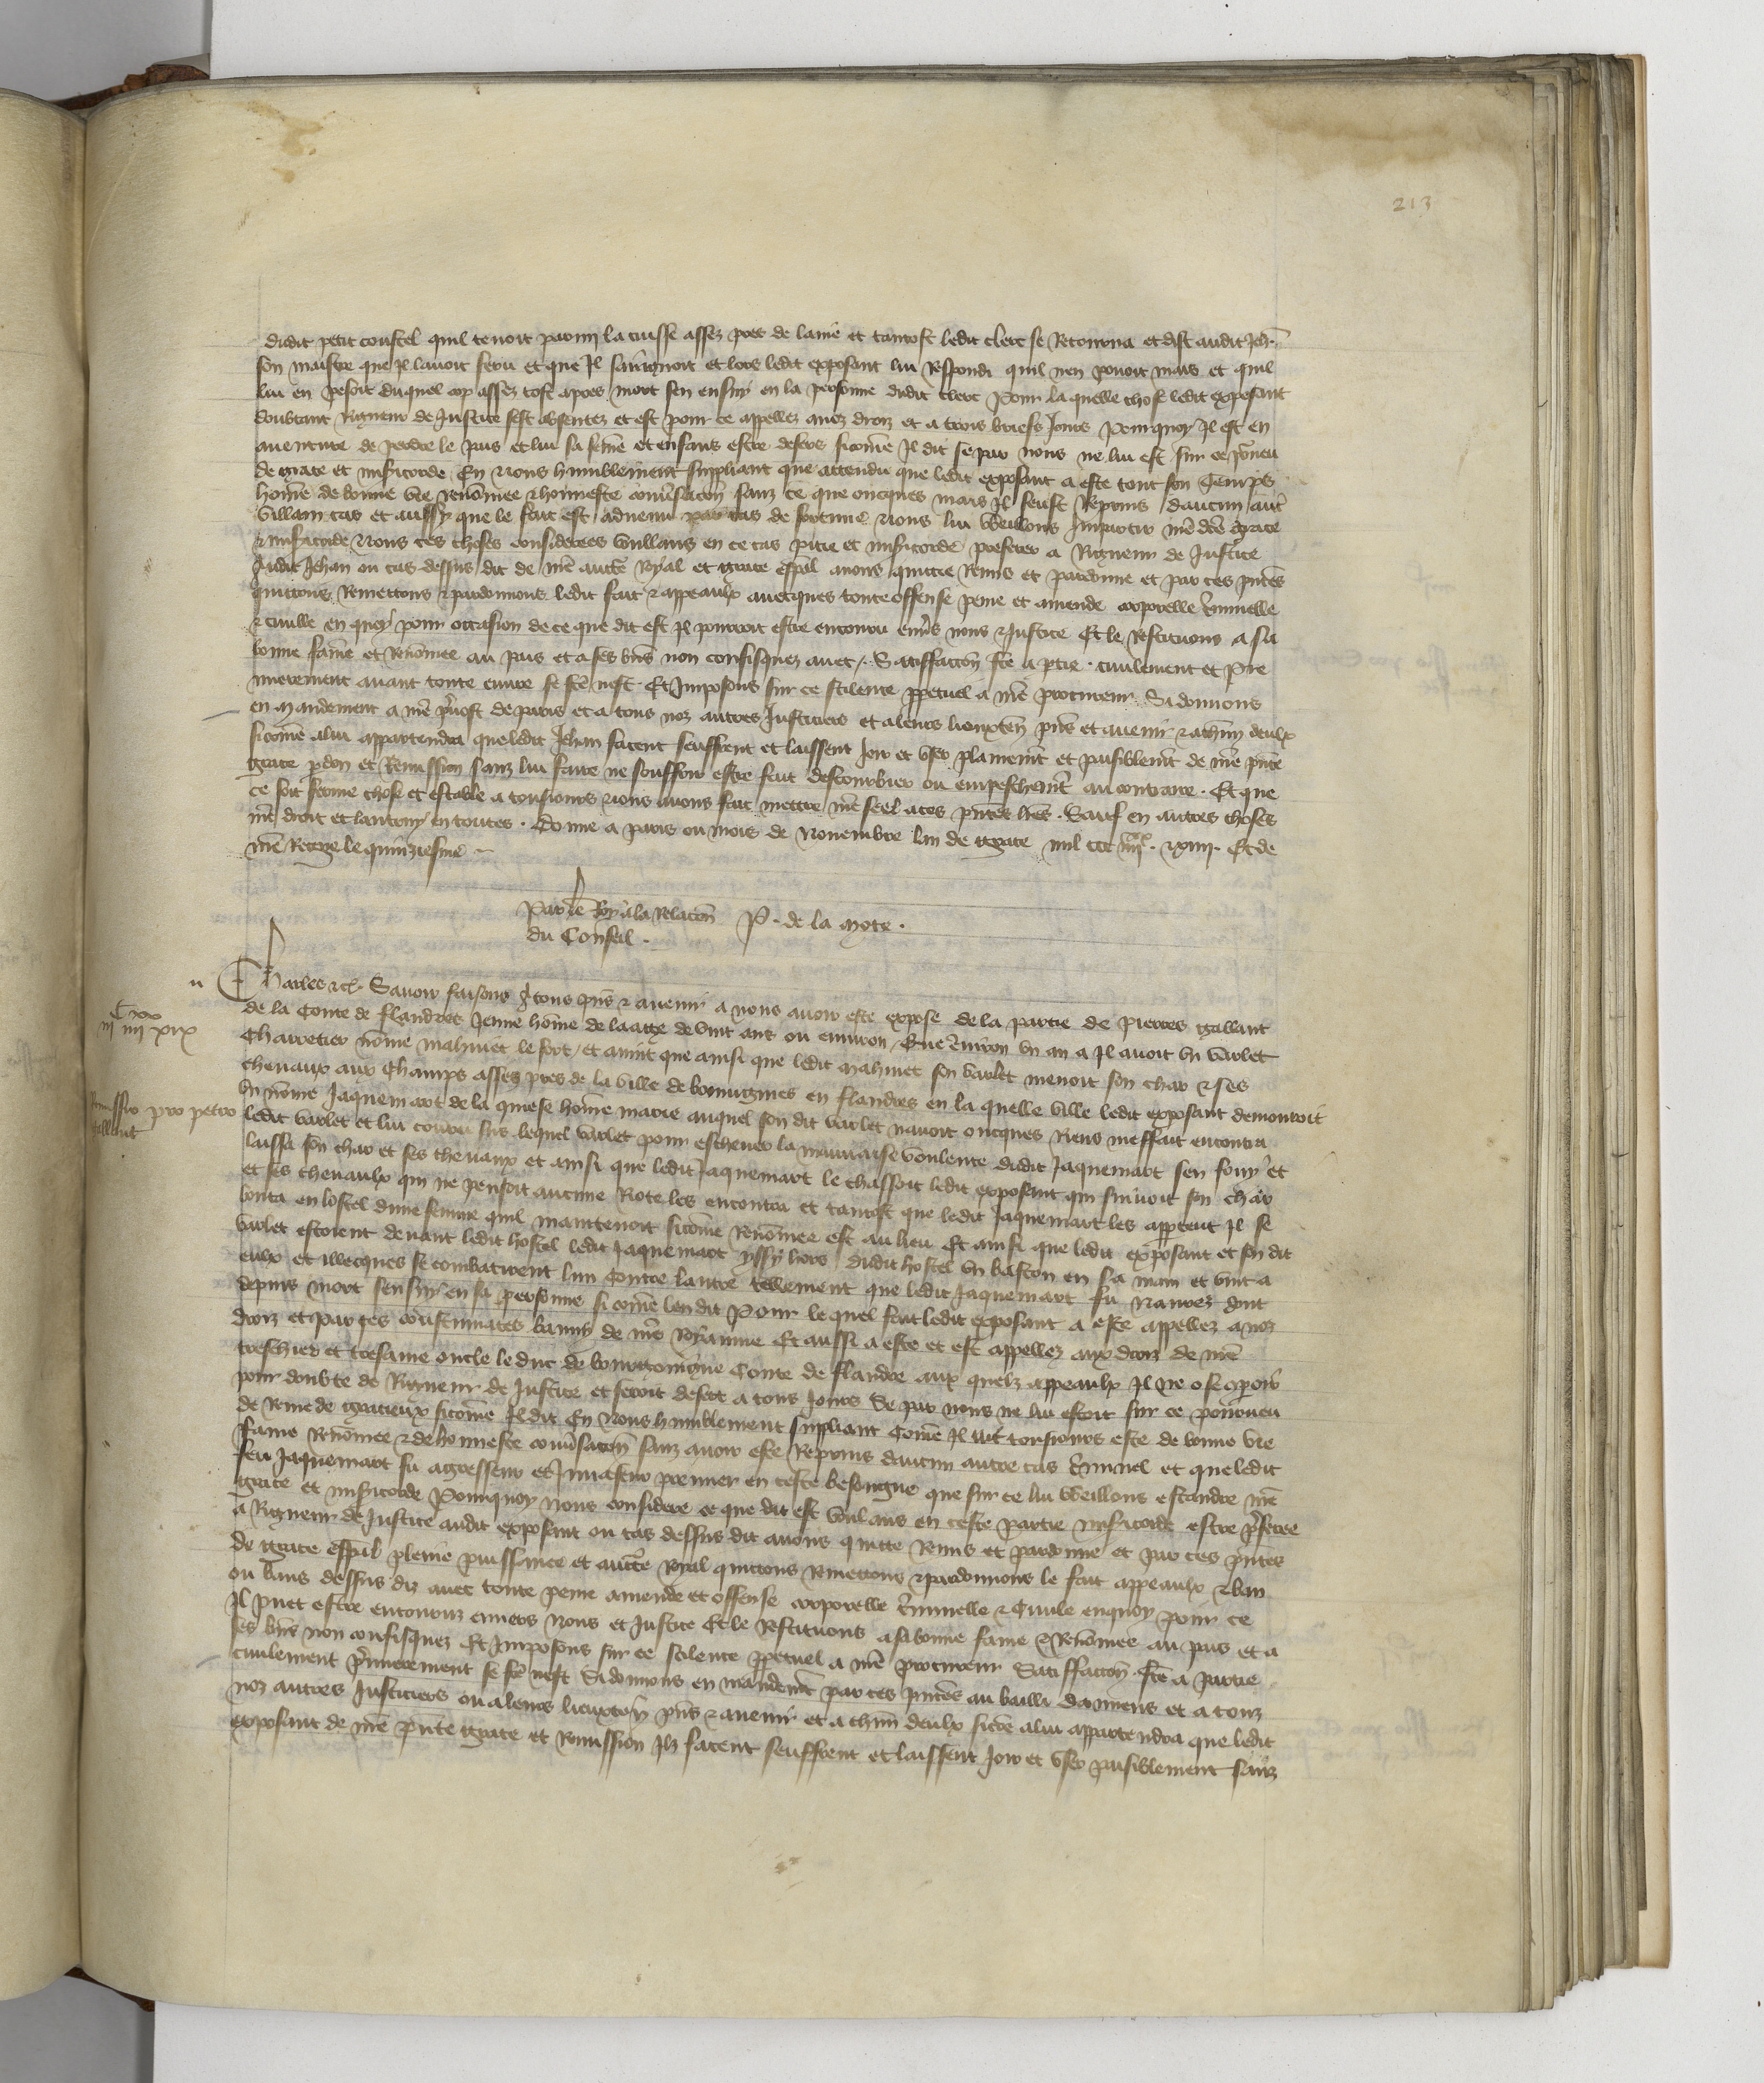 213
dudit petit coustel quil tenoit parmi la cuisse assez pres de laine et tantost ledit clerc se retourna et dist audit Jeh̄
son maistre que Il lavoit feru et que Il saingnoit et lors ledit exposant lui respondi quil nen povoit mais et quil
lui en pesoit duquel cop assez tost apres mort sen ensuy en la personne dudit clerc Pour la quelle chose ledit exposant
doubtant rigueur de Justice sest absentez et est pour ce appellez a noz droiz et a trois briefs Jours Pour quoy Il est en
aventure de perdre le pais et lui sa fem̄e et enfans estre desers sicom̄e Il dit se par nous ne lui est sur ce pourveu
de grace et mīsicorde En nous humblement suppliant que attendu que ledit exposant a este tout son temps
hom̄e de bonne vie renom̄ee & honneste conv̄sacōn sanz ce que oncques mais Il feust reprins daucun autr̄
villain cas et aussy que le fait est advenu par cas de fortune nous lui vueillons Impartir nr̄e dc̄e grace
& mīsicorde Nous ces choses considerees voullans en ce cas pitie et mīsicorde preferer a rigueur de Justice
Audit Jehan ou cas dessus dit de nr̄e auctē royal et grace esp̄al avons quictie remis et pardonne et par ces pn̄tes
quictons remettons & pardonnons ledit fait & appeaulx avecques toute offense peine et amende corporelle c̄minelle
& civille en quoy pour occasion de ce que dit est Il pourroit estre encouru env̄s nous & Justice Et le restituons a sa
bonne fame et renom̄ee au pais et a ses bn̄s non confisquez avec / Satisfaccōn fcē a ptie civilement et pre
mierement avant toute euvre se fcē nest Et Imposons sur ce silence ppetuel a nr̄e procureur Si donnons
en mandement a nr̄e p̄vost de paris et a tous noz autres Justiciers et a leurs lieuxten̄ pn̄s et avenir & a ch̄un deulx
sicom̄e a lui appartendra que ledit Jehan facent seuffrent et laissent Joir et user plainemn̄t et paisiblemn̄t de nr̄e pn̄te
grace pdon et remission sanz lui faire ne souffrir estre fait destourbier ou empeschemn̄t au contraire . Et que
ce soit ferme chose et estable a tousiours nous avons fait mettre nr̄e seel a ces pn̄tes lr̄es . Sauf en autres choses
nr̄e droit et lautruy en toutes . Donne a paris ou mois de Novembre lan de grace mil ccc iiiixx . & xiiii . Et de
nr̄e Regne le quinziesme
Par le Roy a la relacōn P. de la Mote .
du Conseil .
n Charles &c̄. Savoir faisons a tous pn̄s & avenir a nous avoir este expose de la partie de Pierres Gallant
C xx
iii iiii xix
de la Conte de Flandres Jeune hom̄e de laage de vint ans ou environ / Que Environ un an a Il avoit un varlet
Charretier nom̄e Mahuiet le fort / et avint que ainsi que ledit Mahuiet son varlet menoit son char & ses
chevaux aux champs assez pres de la ville de en flandres en la quelle ville ledit exposant demouroit
Remissio pro petro
Gallant
un nom̄e Jaquemart de la hom̄e marie auquel son dit varlet navoit oncques riens meffait encontra
ledit varlet et lui couru sus lequel varlet pour eschever la mauvaise voulente dudit Jaquemart sen fouy et
laissa son char et ses chevaux et ainsi que ledit Jaquemart le chassoit ledit exposant qui suivoit son char
et ses chevaulx qui ne pensoit aucune riote les encontra et tantost que ledit Jaquemart les appercut Il se
bouta en lostel dune femme quil maintenoit sicom̄e renom̄ee est au lieu Et ainsi que ledit exposant et son dit
varlet estoient devant ledit hostel ledit Jaquemart yssy hors dudit hostel un baston en sa main et vint a
eulx et illecques se combatirent lun contre lautre tellement que ledit Jaquemart fu navrez dont
depuis mort sensuy en sa personne si com̄e len dit Pour lequel fait ledit exposant a este appellez a noz
droiz et par ses contumaces banny de nr̄e Royaume Et aussi a este et est appellez aux droiz de nr̄e
treschier et tresame oncle le duc de bourgoingne Conte de flandre aux quelz appeaulx Il ne ose c̄paroir
pour doubte de rigueur de Justice et seroit desert a tous Jours Se par nous ne lui estoit sur ce pourveu
de remede gracieux sicom̄e Il dit En Nous humblement suppliant Com̄e Il ait tousiours este de bonne vie
fame renom̄ee & de honneste conv̄sacōn sanz avoir este reprins daucun autre cas c̄minel et que ledit
feu Jaquemart fu agresseur et Invaseur premier en ceste besongne que sur ce lui vueillons estandre nr̄e
grace et mīsicorde Pourquoy nous considere ce que dit est voulans en ceste partie mīsicorde estre p̄feree
a rigueur de Justice audit exposant ou cas dessus dit avons quitte remis et pardonne et par ces pn̄tes
de grace esp̄al pleine puissance et auctē royal quictons remettons & pardonnons le fait appeaulx & ban
ou bans dessus diz avec toute peine amende et offense corporelle c̄minelle & Civile en quoy pour ce
Il puet estre encouruz envers nous et Justice Et le restituons a sa bonne fame & renom̄ee au pais et a
ses bn̄s non confisquez Et Imposons sur ce silence ppetuel a nr̄e procureur Satisfaccōn fcē a partie
civilement p̄mierement se fcē nest Si donnons en mandemn̄t par ces pn̄tes au bailli Damiens et a touz
noz autres Justiciers ou a leurs lieuxten̄ pn̄s & avenir et a ch̄un deulx sicom̄e a lui appartendra que ledit
exposant de nr̄e pn̄te grace et remission Ilz facent seuffrent et laissent Joir et user paisiblement sanz